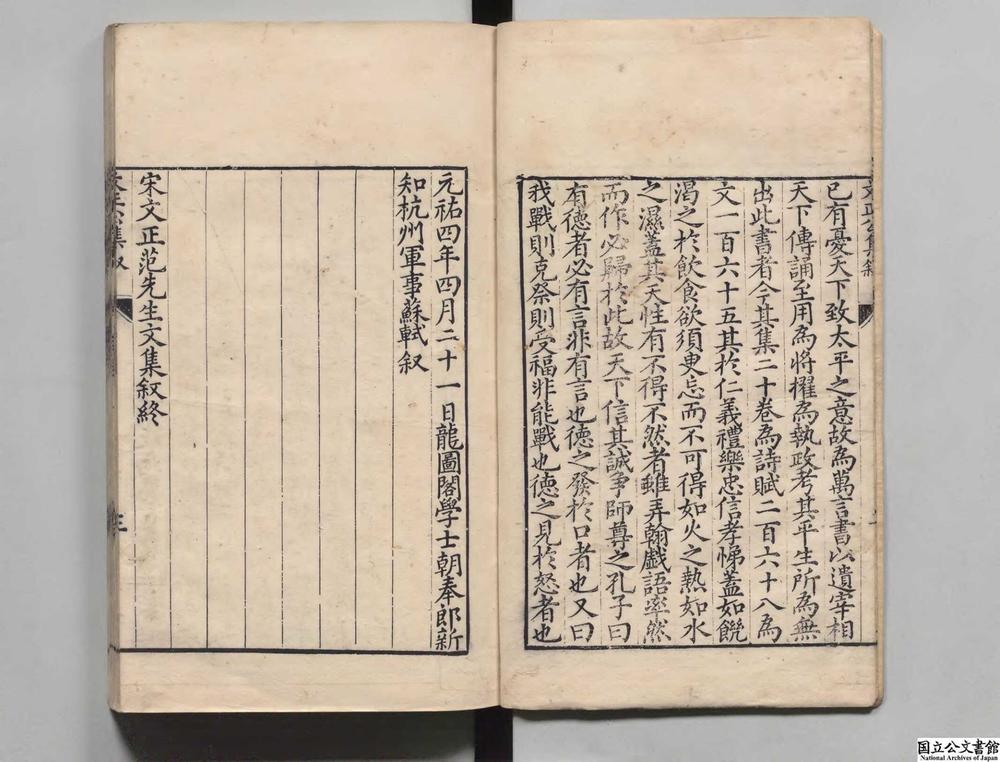 已有憂天下致太平之意故為萬言書以遺宰相
天下傳誦至用為將擢為執政考其平生所為無
出此書者今其集二十卷為詩賦二百六十八為
文一百六十五其於仁義禮樂忠信孝悌蓋如飢
渴之於飲食欲須臾忘而不可得如火之熱如水
之濕蓋其天性有不得不然者雖弄翰戲語率然
而作必歸於此故天下信其誠爭師尊之孔子曰
有德者必有言非有言也德之發於口者也又曰
我戰則克祭則受福非能戰也德之見於怒者也
元祐四年四月二十一日龍圖閣學士朝奉郎新
知杭州軍事蘇軾叙
宋文正范先生文集叙終
国立公文書館
National Archives of Japan